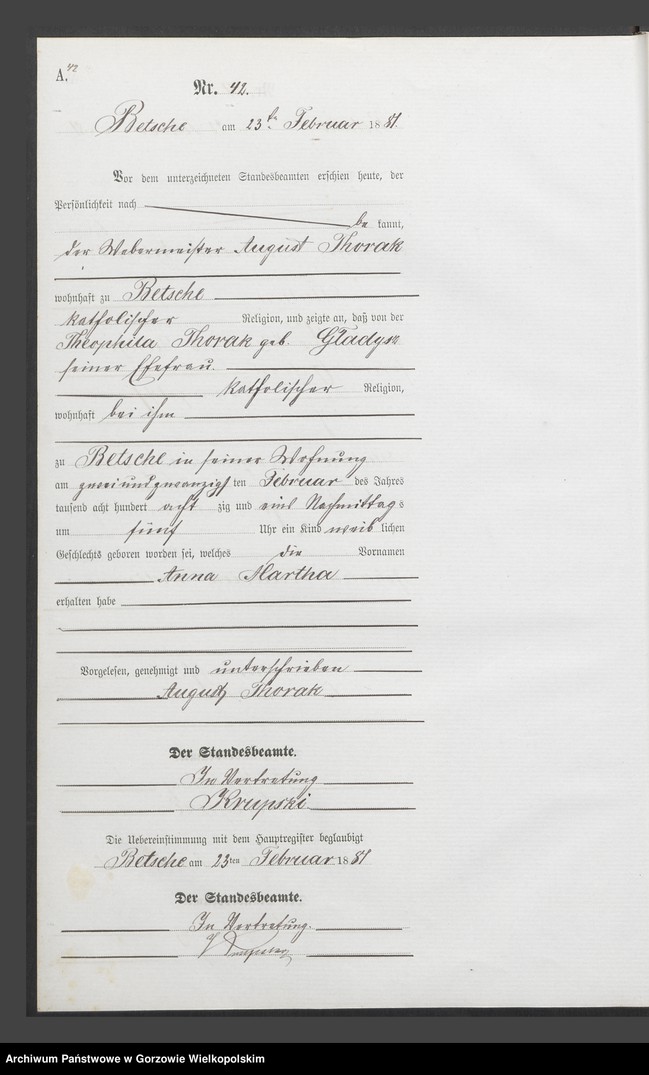 A. 42
Nr. 42.
Betsche am 23ten Februar 1881.
Vor dem unterzeichneten Standesbeamten erschien heute, der
Persönlichkeit nach
be kannt,
der Webermeister August Thorak
wohnhaft zu Betsche
katholischer Religion, und zeigte an, daß von der
Theophila Thorak geb. Gładysz
seiner Ehefrau.
katholischer Religion,
wohnhaft bei ihm
zu Betsche in seiner Wohnung
am zweiundzwanzigs ten Februar des Jahres
tausend acht hundert acht zig und eins Nachmittag s
um fünf Uhr ein Kind weib lichen
Geschlechts geboren worden sei, welches die Vornamen
Anna Martha
erhalten habe
Vorgelesen, genehmigt und unterschrieben
August Thorak
Der Standesbeamte.
In Vertretung
Krupski
Die Uebereinstimmung mit dem Hauptregister beglaubigt
Betsche am 23ten Februar 1881
Der Standesbeamte.
In Vertretung.
Archiwum Państwowe w Gorzowie Wielkopolskim